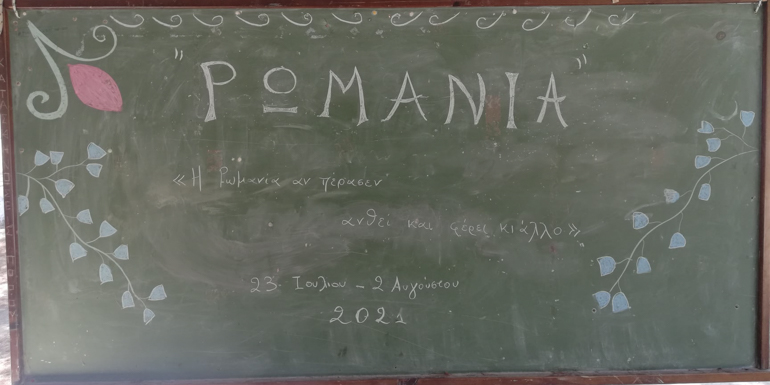 "ΡΩΜΑΝΙΑ"
«Η Ρωμανία αν πέρασεν
ανθεί και φέρει κι άλλο»
23 Ιουλίου - 2 Αυγούστου
2021